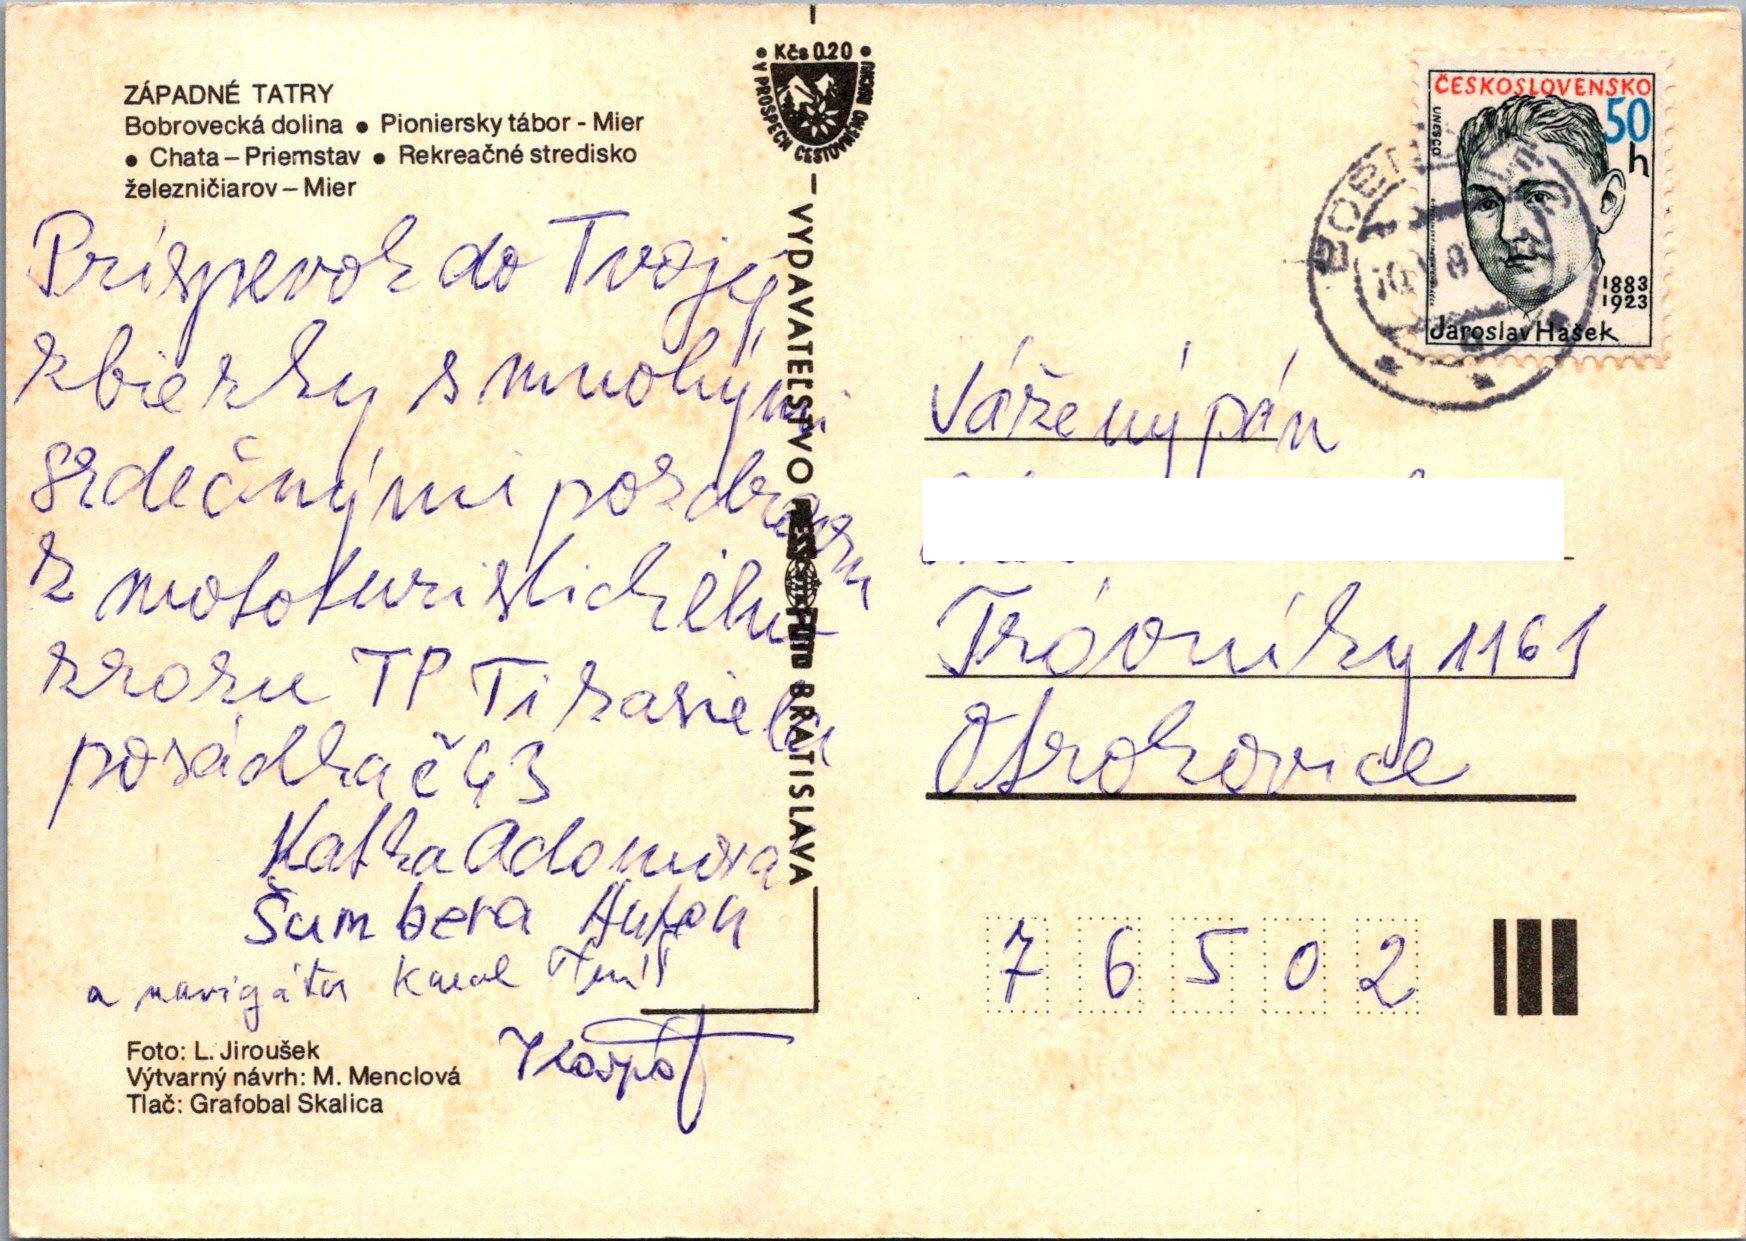 ZÁPADNÉ TATRY
Bobrovecká dolina • Pioniersky tábor - Mier
• Chata – Priemstav • Rekreačné stredisko
železničiarov – Mier
Príspevok do Tvojej
zbierky s mnohými
srdečnými pozdravom
z mototuristického
zrazu TP Tikasiela
posádka č 43
Katka Adamova
Šumbera Anton
a navigátor Karol
Foto: L. Jiroušek
Výtvarný návrh: M. Menclová
Tlač: Grafobal Skalica
• Kčs 0.20 •
V PROSPECH CESTOVNÉHO RUCHU
VYDAVATEĽSTVO PRESSFOTO BRATISLAVA
ČESKOSLOVENSKO
50
h
UNESCO
1883
1923
Jaroslav Hašek
Vážený pán
Trávníky 1161
Otrokovice
7 6 5 0 2